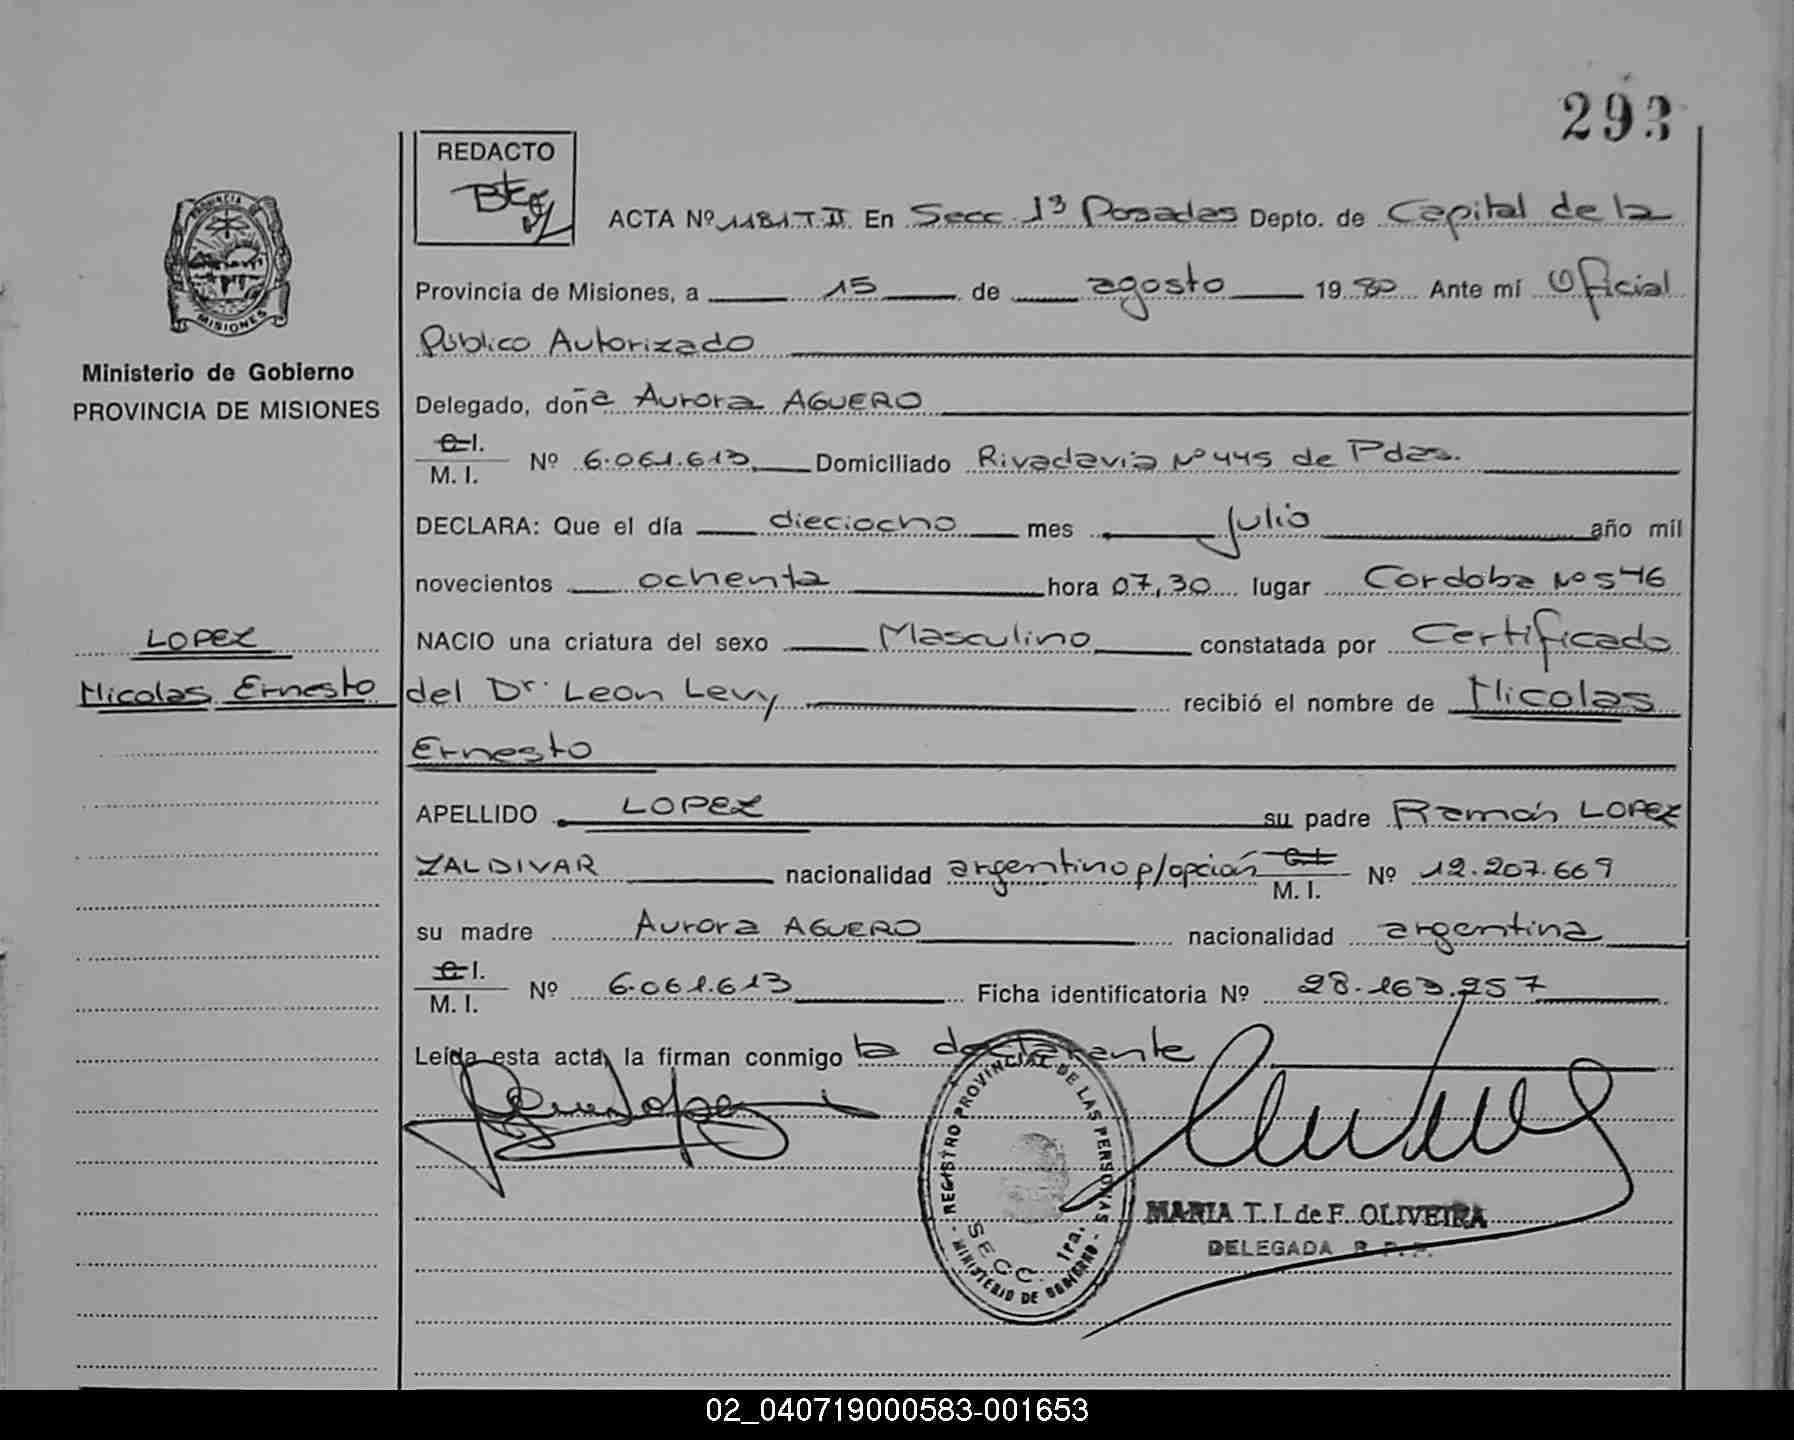 293
REDACTO
ACTA Nº 1181 T. II En Secc. 1ª Posadas Depto. de Capital de la
Provincia de Misiones, a 15 de agosto 1980 Ante mí Oficial
Público Autorizado
PROVINCIA DE
MISIONES
Ministerio de Gobierno
PROVINCIA DE MISIONES
Delegado, doña Aurora AGUERO
C. I.
M. I. Nº 6.061.613 Domiciliado Rivadavia Nº 445 de Pdas.
DECLARA: Que el día dieciocho mes julio año mil
novecientos ochenta hora 07,30 lugar Cordoba Nº 546
NACIO una criatura del sexo Masculino constatada por Certificado
LOPEZ
Nicolas Ernesto
del Dr. Leon Levy recibió el nombre de Nicolas
Ernesto
APELLIDO LOPEZ su padre Ramón LOPEZ
ZALDIVAR nacionalidad argentino p/opción C. I. M. I. Nº 12.207.669
su madre Aurora AGUERO nacionalidad argentina
C. I.
M. I. Nº 6.061.613 Ficha identificatoria Nº 28.163.257
Leída esta acta, la firman conmigo la declarante
REGISTRO PROVINCIAL DE LAS PERSONAS
SECC. 1ra.
MINISTERIO DE GOBIERNO
MARIA T. I. de F. OLIVEIRA
DELEGADA R. P. P.
02_040719000583-001653